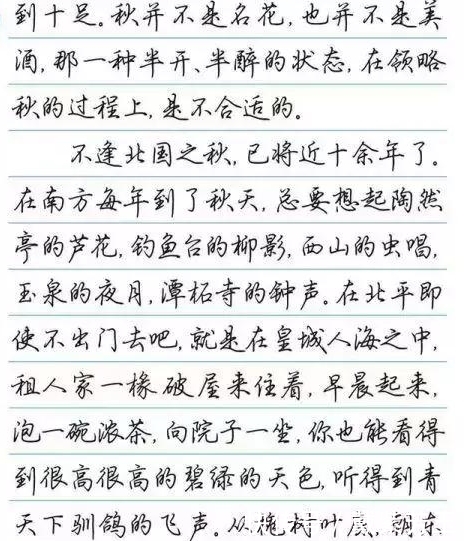 到十足。秋并不是名花，也并不是美
酒，那一种半开、半醉的状态，在领略
秋的过程上，是不合适的。
不逢北国之秋，已将近十余年了。
在南方每年到了秋天，总要想起陶然
亭的芦花，钓鱼台的柳影，西山的虫唱，
玉泉的夜月，潭柘寺的钟声。在北平即
使不出门去吧，就是在皇城人海之中，
租人家一椽破屋来住着，早晨起来，
泡一碗浓茶，向院子一坐，你也能看得
到很高很高的碧绿的天色，听得到青
天下驯鸽的飞声。从槐树叶底，朝东